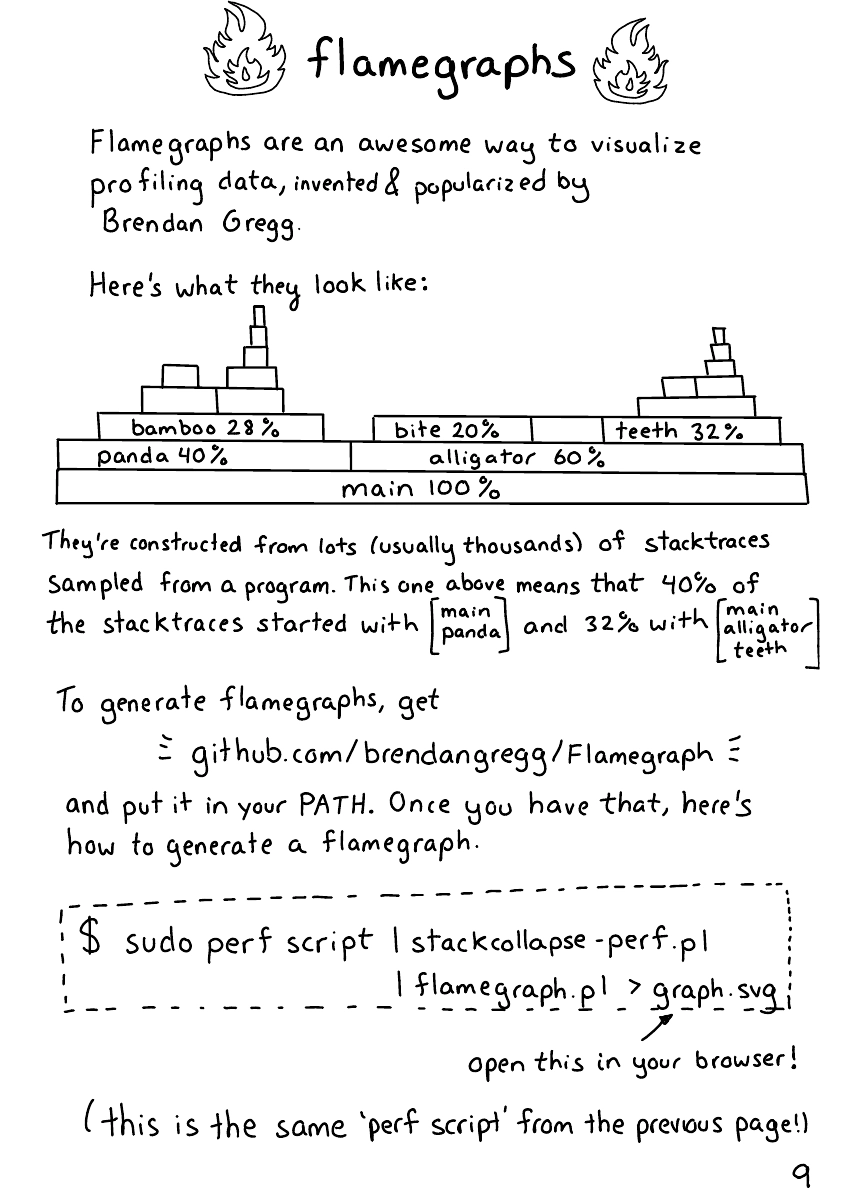 flamegraphs
Flamegraphs are an awesome way to visualize
profiling data, invented & popularized by
Brendan Gregg.
Here's what they look like:
bamboo 28%
bite 20%
teeth 32%
panda 40%
alligator 60%
main 100%
They're constructed from lots (usually thousands) of stacktraces
sampled from a program. This one above means that 40% of
the stacktraces started with [main panda] and 32% with [main alligator teeth]
To generate flamegraphs, get
github.com/brendangregg/Flamegraph
and put it in your PATH. Once you have that, here's
how to generate a flamegraph.
$ sudo perf script | stackcollapse-perf.pl
| flamegraph.pl > graph.svg
open this in your browser!
(this is the same 'perf script' from the previous page!)
9